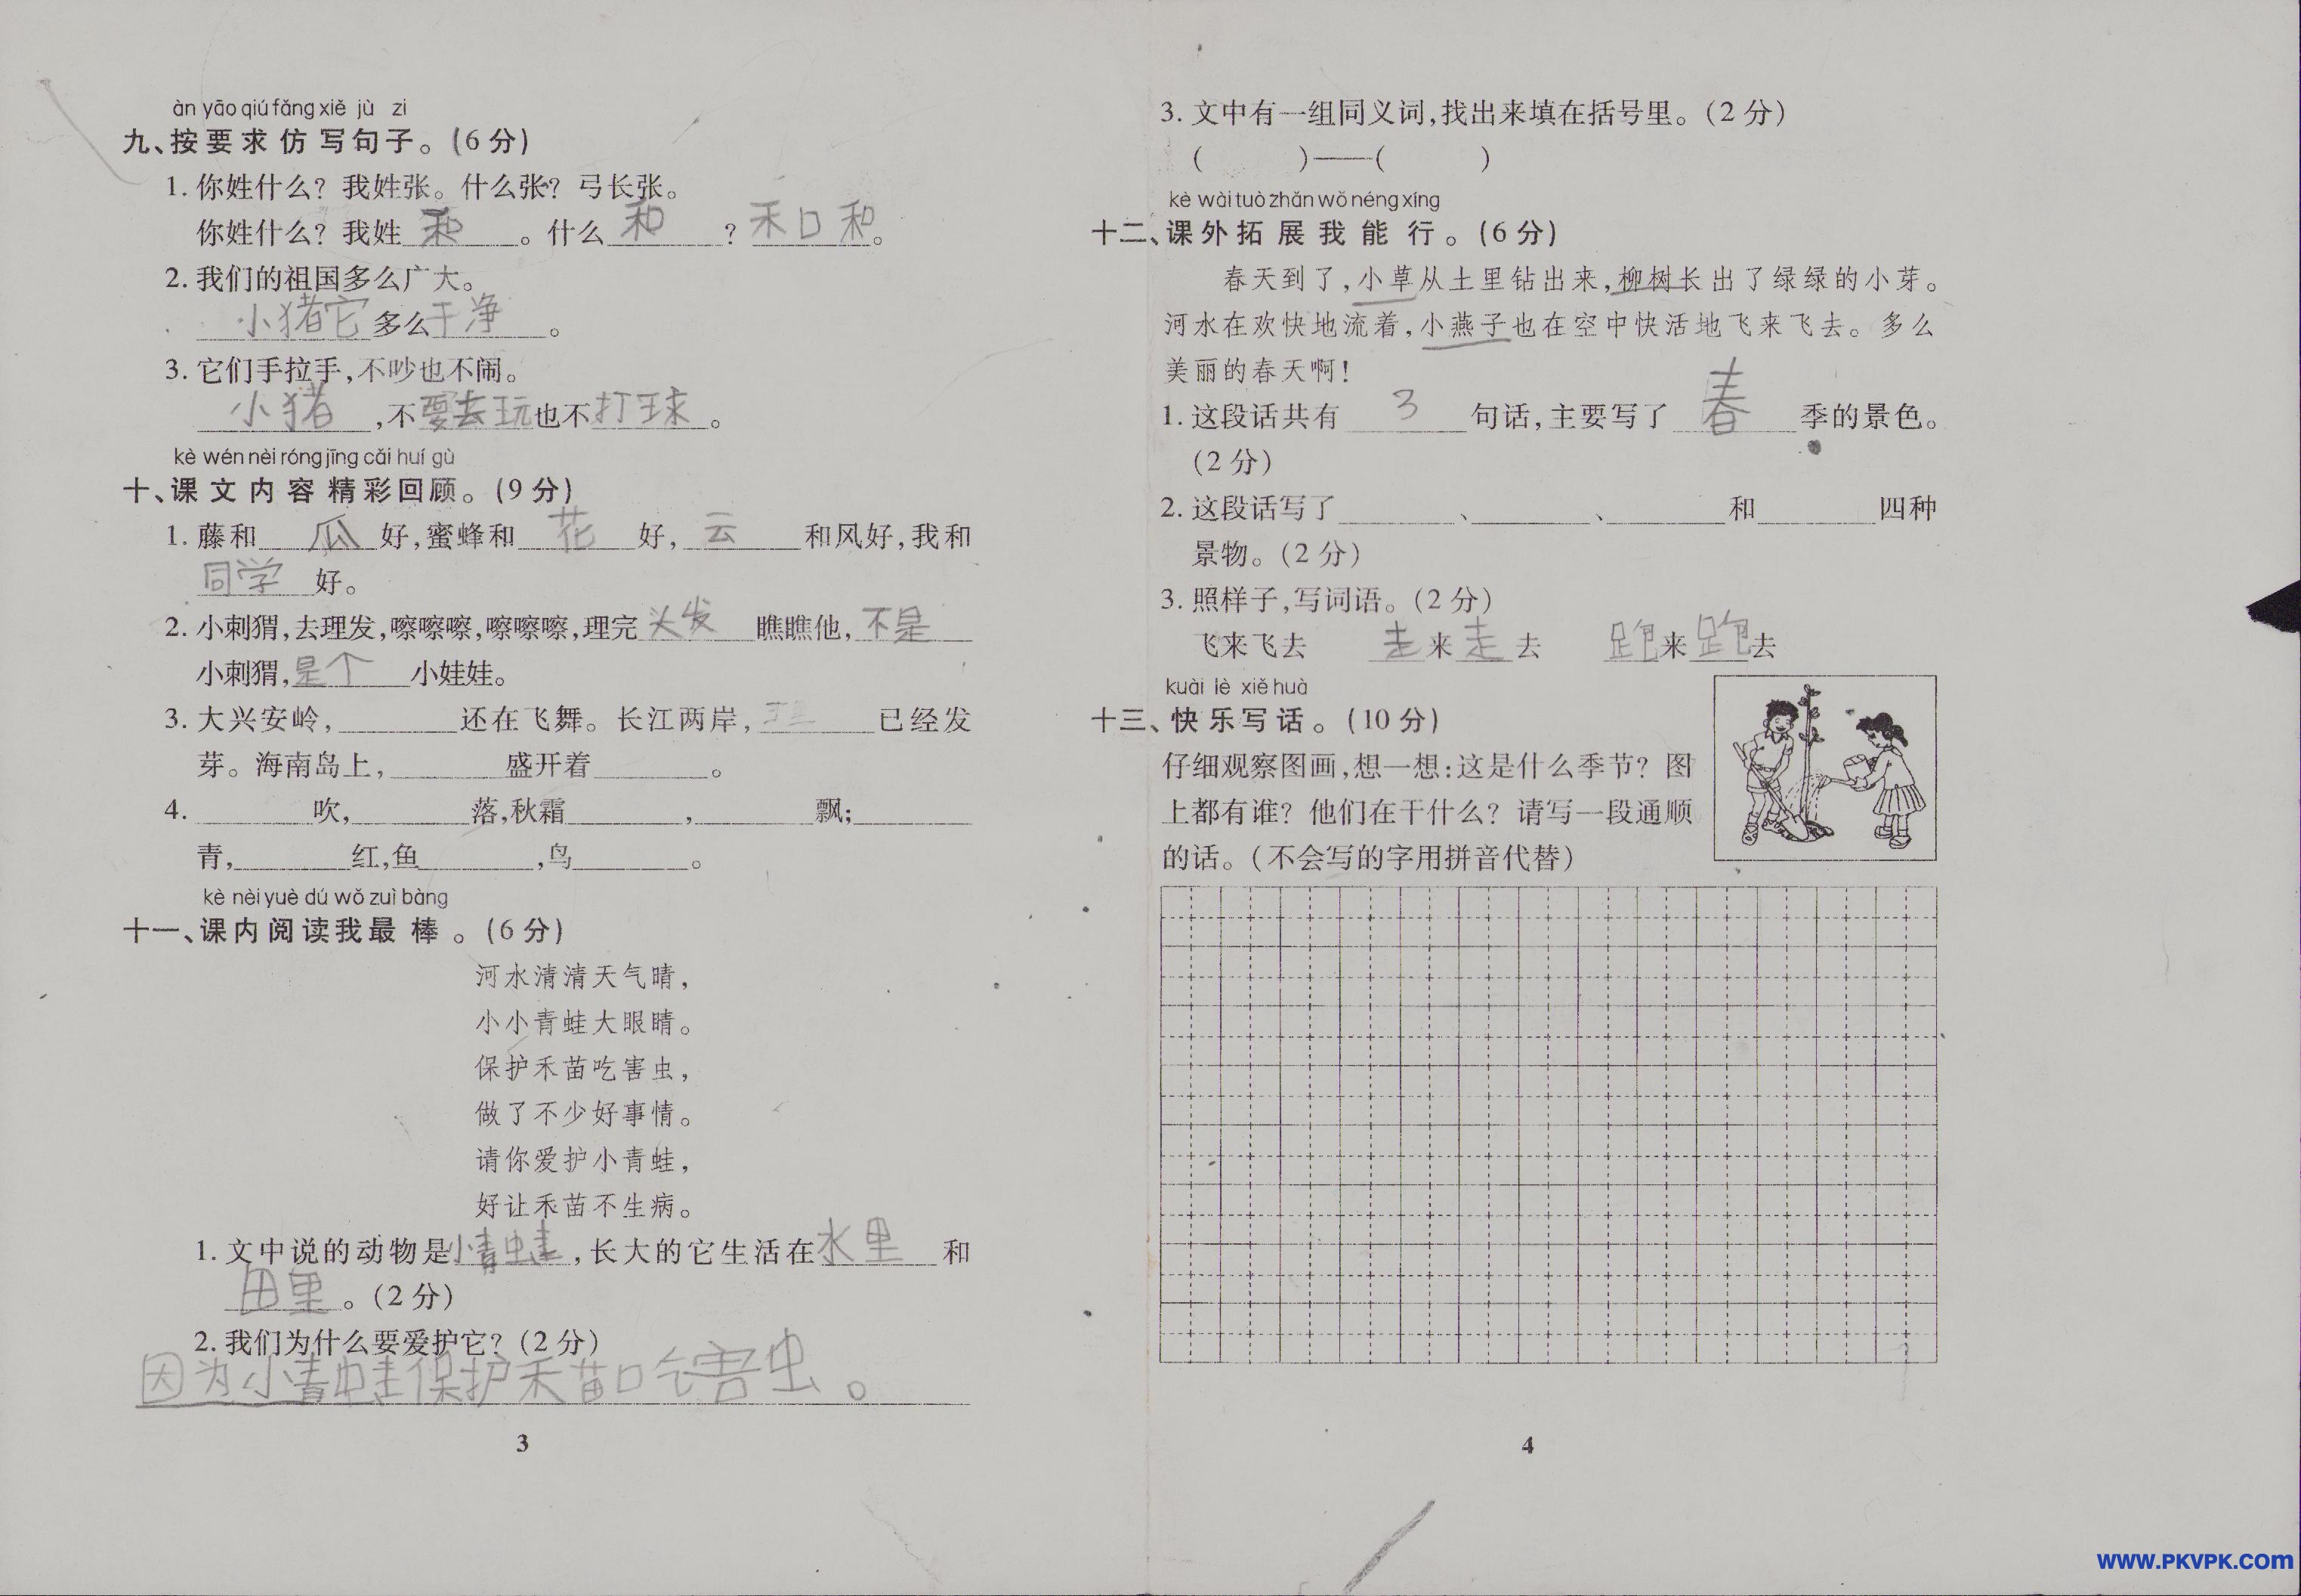 àn yāo qiú fǎng xiě jù zi
九、按要求仿写句子。(6分)
1. 你姓什么? 我姓张。什么张? 弓长张。
你姓什么? 我姓 和 。什么 和 ? 禾口和 。
2. 我们的祖国多么广大。
小猪它 多么 干净 。
3. 它们手拉手,不吵也不闹。
小猪 ,不 要去玩 也不 打球 。
kè wén nèi róng jīng cǎi huí gù
十、课文内容精彩回顾。(9分)
1. 藤和 瓜 好,蜜蜂和 花 好, 云 和风好,我和
同学 好。
2. 小刺猬,去理发,嚓嚓嚓,嚓嚓嚓,理完 头发 瞧瞧他, 不是
小刺猬, 是个 小娃娃。
3. 大兴安岭,________还在飞舞。长江两岸,________已经发
芽。海南岛上,________盛开着________。
4. ________吹,________落,秋霜________,________飘;________
青,________红,鱼________,鸟________。
kè nèi yuè dú wǒ zuì bàng
十一、课内阅读我最棒。(6分)
河水清清天气晴,
小小青蛙大眼睛。
保护禾苗吃害虫,
做了不少好事情。
请你爱护小青蛙,
好让禾苗不生病。
1. 文中说的动物是 小青蛙 ,长大的它生活在 水里 和
田里 。(2分)
2. 我们为什么要爱护它?(2分)
因为小青蛙保护禾苗吃害虫。
3
3. 文中有一组同义词,找出来填在括号里。(2分)
(    )——(    )
kè wài tuò zhǎn wǒ néng xíng
十二、课外拓展我能行。(6分)
春天到了,小草从土里钻出来,柳树长出了绿绿的小芽。
河水在欢快地流着,小燕子也在空中快活地飞来飞去。多么
美丽的春天啊!
1. 这段话共有 3 句话,主要写了 春 季的景色。
(2分)
2. 这段话写了________、________、________和________四种
景物。(2分)
3. 照样子,写词语。(2分)
飞来飞去 走来走去 跑来跑去
kuài lè xiě huà
十三、快乐写话。(10分)
仔细观察图画,想一想:这是什么季节? 图
上都有谁? 他们在干什么? 请写一段通顺
的话。(不会写的字用拼音代替)
4
www.PKVPK.com